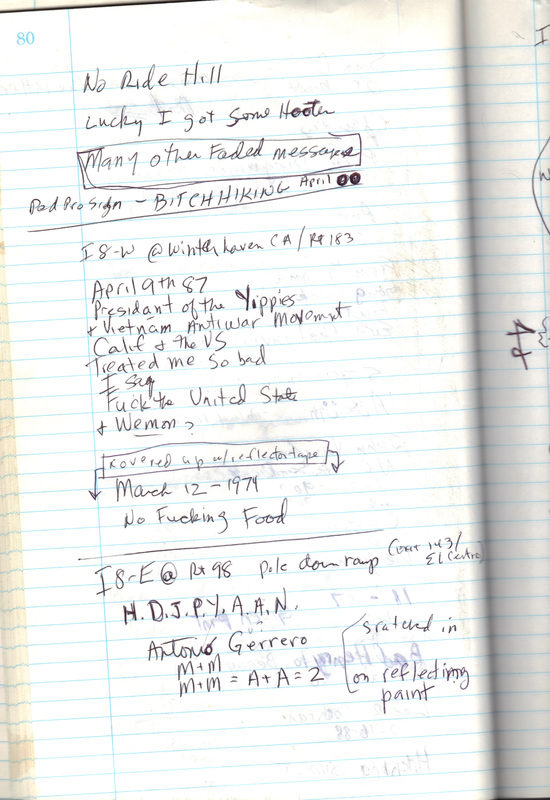 80
No Ride Hill
Lucky I got some Hooter
Many other Faded messages
Ped Pro Sign - BITCHHIKING April
I8-W @ Winterhaven CA / Rt 183
April 9th 87
Presidant of the Yippies
+ Vietnam Antiwar Movement
Calif + the US
Treated me so bad
I say
Fuck the United State
+ Wemon ?
Kovered up w/ reflector tape
March 12 - 1974
No Fucking Food
I8-E @ Rt 98 Pole down ramp (Exit 143/
El Centro)
H.D.J.P.Y.A.A.N.
Antonio Gerrero
M+M
M+M = A+A = 2
sratched in
on reflecting
paint